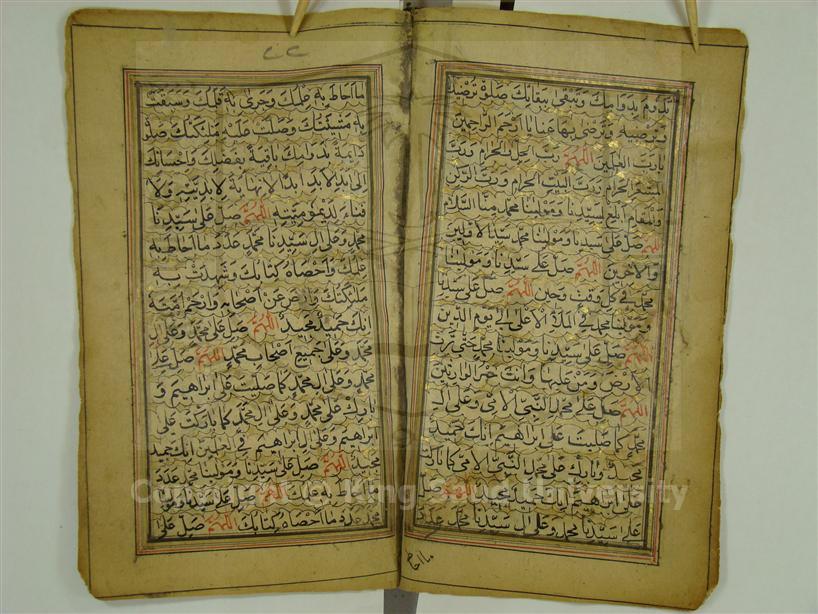 تدوم بدوامك وتبقى ببقائك صلوة ترضيك
وترضيه وترضى بها عنا يا ارحم الراحمين
يا رب العلمين اللهم رب الحل والحرام ورب
المشعر الحرام ورب البيت الحرام ورب الركن
والمقام ابلغ لسيدنا ومولينا محمد منا السلام
اللهم صل على سيدنا ومولينا محمد سيد الاولين
والاخرين اللهم صل على سيدنا ومولينا
محمد في كل وقت وحين اللهم صل على سيدنا
ومولينا محمد في الملاء الاعلى الى يوم الدين
اللهم صل على سيدنا ومولينا محمد حتى ترث
الارض ومن عليها وانت خير الوارثين
اللهم صل على محمد النبي الامي وعلى ال
محمد كما صليت على ابراهيم انك حميد
مجيد وبارك على محمد النبي الامي كما باركت
على ابراهيم انك حميد مجيد اللهم صل
على سيدنا محمد وعلى ال سيدنا محمد عدد
ما احاط
ما احاط به علمك وجرى به قلمك وسبقت
به مشيئتك وصلت عليه ملئكتك صلوة
دائمة بدوامك باقية بفضلك واحسانك
الى ابد الابد ابدا لا نهاية لابديته ولا
فناء لديموميته اللهم صل على سيدنا
محمد وعلى ال سيدنا محمد عدد ما احاط به
علمك واحصاه كتابك وشهدت به
ملئكتك وارض عن اصحابه وارحم امته
انك حميد مجيد اللهم صل على محمد وعلى ال
محمد وعلى جميع اصحاب محمد اللهم صل على
محمد وعلى ال محمد كما صليت على ابراهيم و
بارك على محمد وعلى ال محمد كما باركت على
ابراهيم وعلى ال ابراهيم في العلمين انك حميد
مجيد اللهم صل على سيدنا ومولينا محمد عدد
ما احاط به علمك اللهم صل على سيدنا ومولينا
محمد عدد ما احصاه كتابك اللهم صل على
Copyright © King Saud University